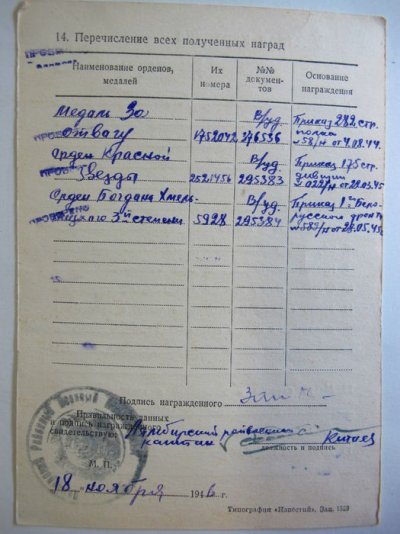 14. Перечисление всех полученных наград
Наименование орденов, медалей
Их номера
№№ документов
Основание награждения
Медаль За отвагу
1752042
В/уд. 276536
Приказ 282 стр. полка №58/н от 4.08.44.
Орден Красной Звезды
2521456
В/уд. 295383
Приказ 175 стр. дивизии №022/н от 28.03.45
Орден Богдана Хмельницкого 3й степени
5928
В/уд. 295384
Приказ 1го Белорусского фронта №583/н от 28.05.45
Подпись награжденного
Правильность данных
и подпись награжденного
свидетельствую:
райвоенком
капитан
Китаев
должность и подпись
М. П.
18 ноября 1946 г.
Типография «Известий», Зак. 1849